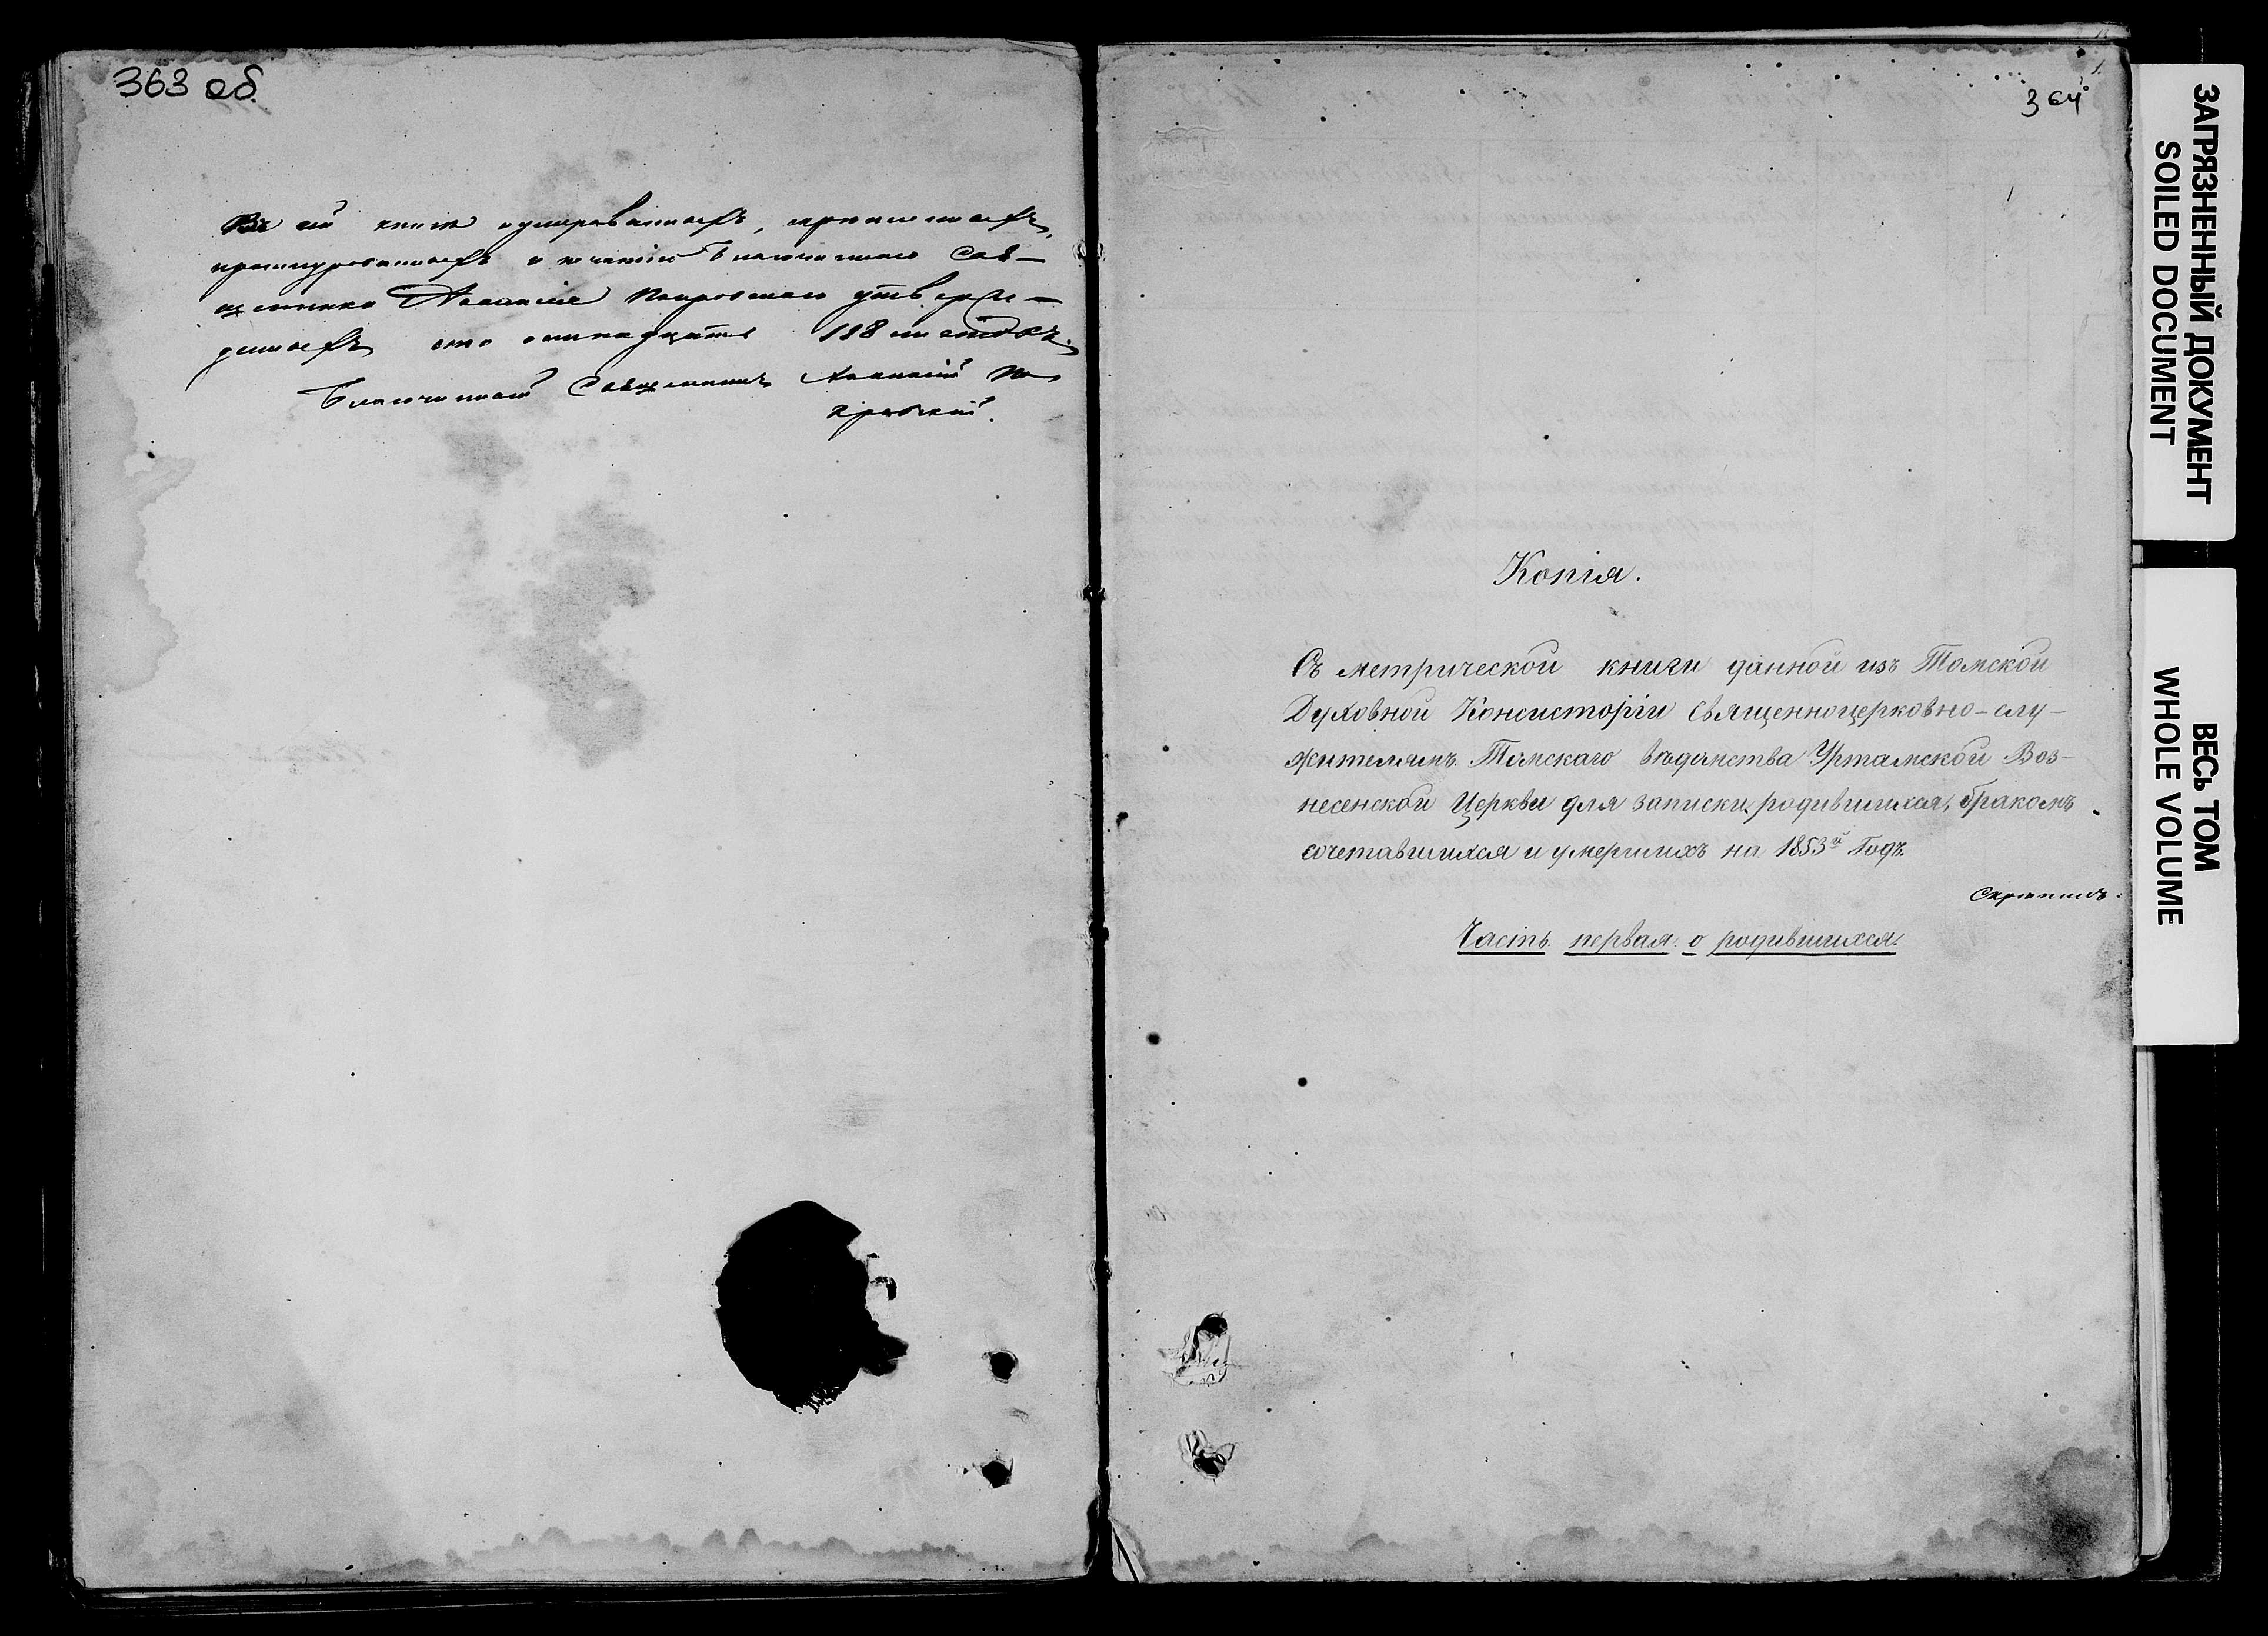 363 об.
Въ сей книге нумерованныхъ, скрепленныхъ,
прошнурованныхъ и печатію Благочиннаго Свя-
щенника Покровскаго утверж-
денныхъ сто осмнадцать 118 листовъ.
Благочинный Священникъ По-
кровский.
1.
364
Копія.
Съ метрической книги данной изъ Томской
Духовной Консисторіи Священноцерковно-слу-
жителямъ Томскаго ведомства Уртамской Воз-
несенской Церкви для записки родившихся, бракомъ
сочетавшихся и умершихъ на 1853й Годъ.
Часть первая о родившихся.
ЗАГРЯЗНЕННЫЙ ДОКУМЕНТ
SOILED DOCUMENT
ВЕСЬ ТОМ
WHOLE VOLUME